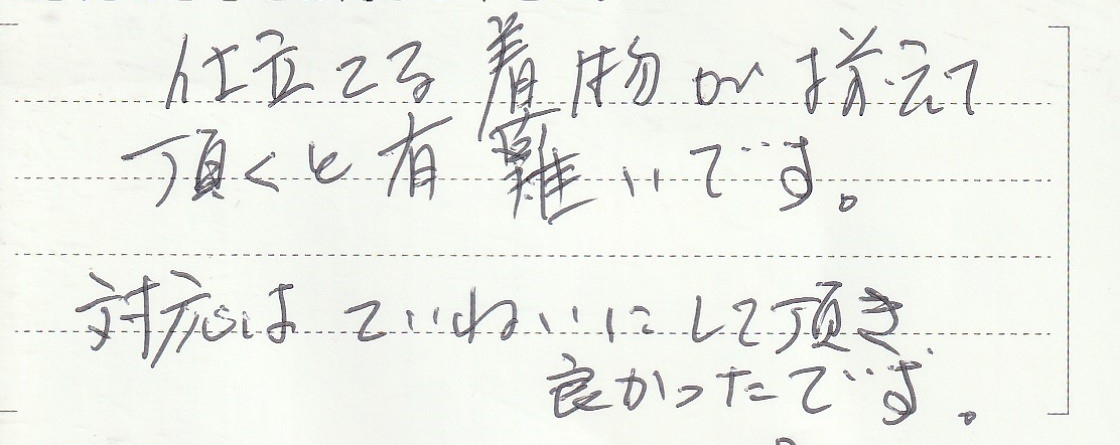 仕立てる着物が揃えて
頂くと有難いです。
対応はていねいにして頂き
良かったです。